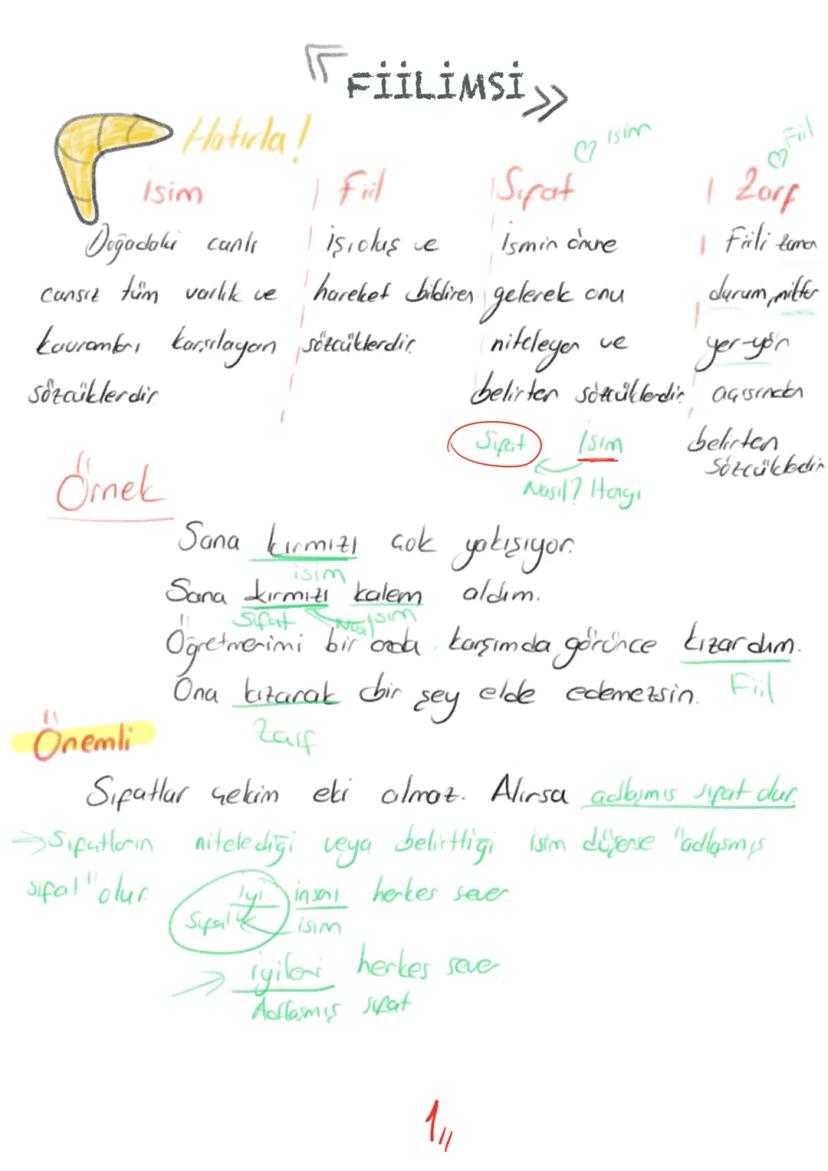 « FİİLİMSİ »
Hatırla!
♡ isim
♡ Fiil
isim | Fiil | Sıfat | Zarf
Doğadaki canlı | iş, oluş ve | İsmin önüne | Fiili zaman
cansız tüm varlık ve | hareket bildiren | gelerek onu | durum, miktar
kavramları karşılayan | sözcüklerdir. | niteleyen ve | yer-yön
sözcüklerdir. | belirten sözcüklerdir. | açısından
Sıfat isim | belirten
Nasıl? Hangi | sözcüklerdir
Örnek
Sana kırmızı çok yakışıyor.
isim
Sana kırmızı kalem aldım.
Sıfat Nasıl isim
Öğretmenimi bir anda karşımda görünce kızardım.
Fiil
Ona kızarak bir şey elde edemezsin.
Zarf
Önemli
Sıfatlar çekim eki almaz. Alırsa adlaşmış sıfat olur.
→ Sıfatların nitelediği veya belirttiği isim düşerse "adlaşmış
sıfat" olur.
iyi insanı herkes sever.
Sıfat isim
→ iyileri herkes sever
Adlaşmış sıfat
1